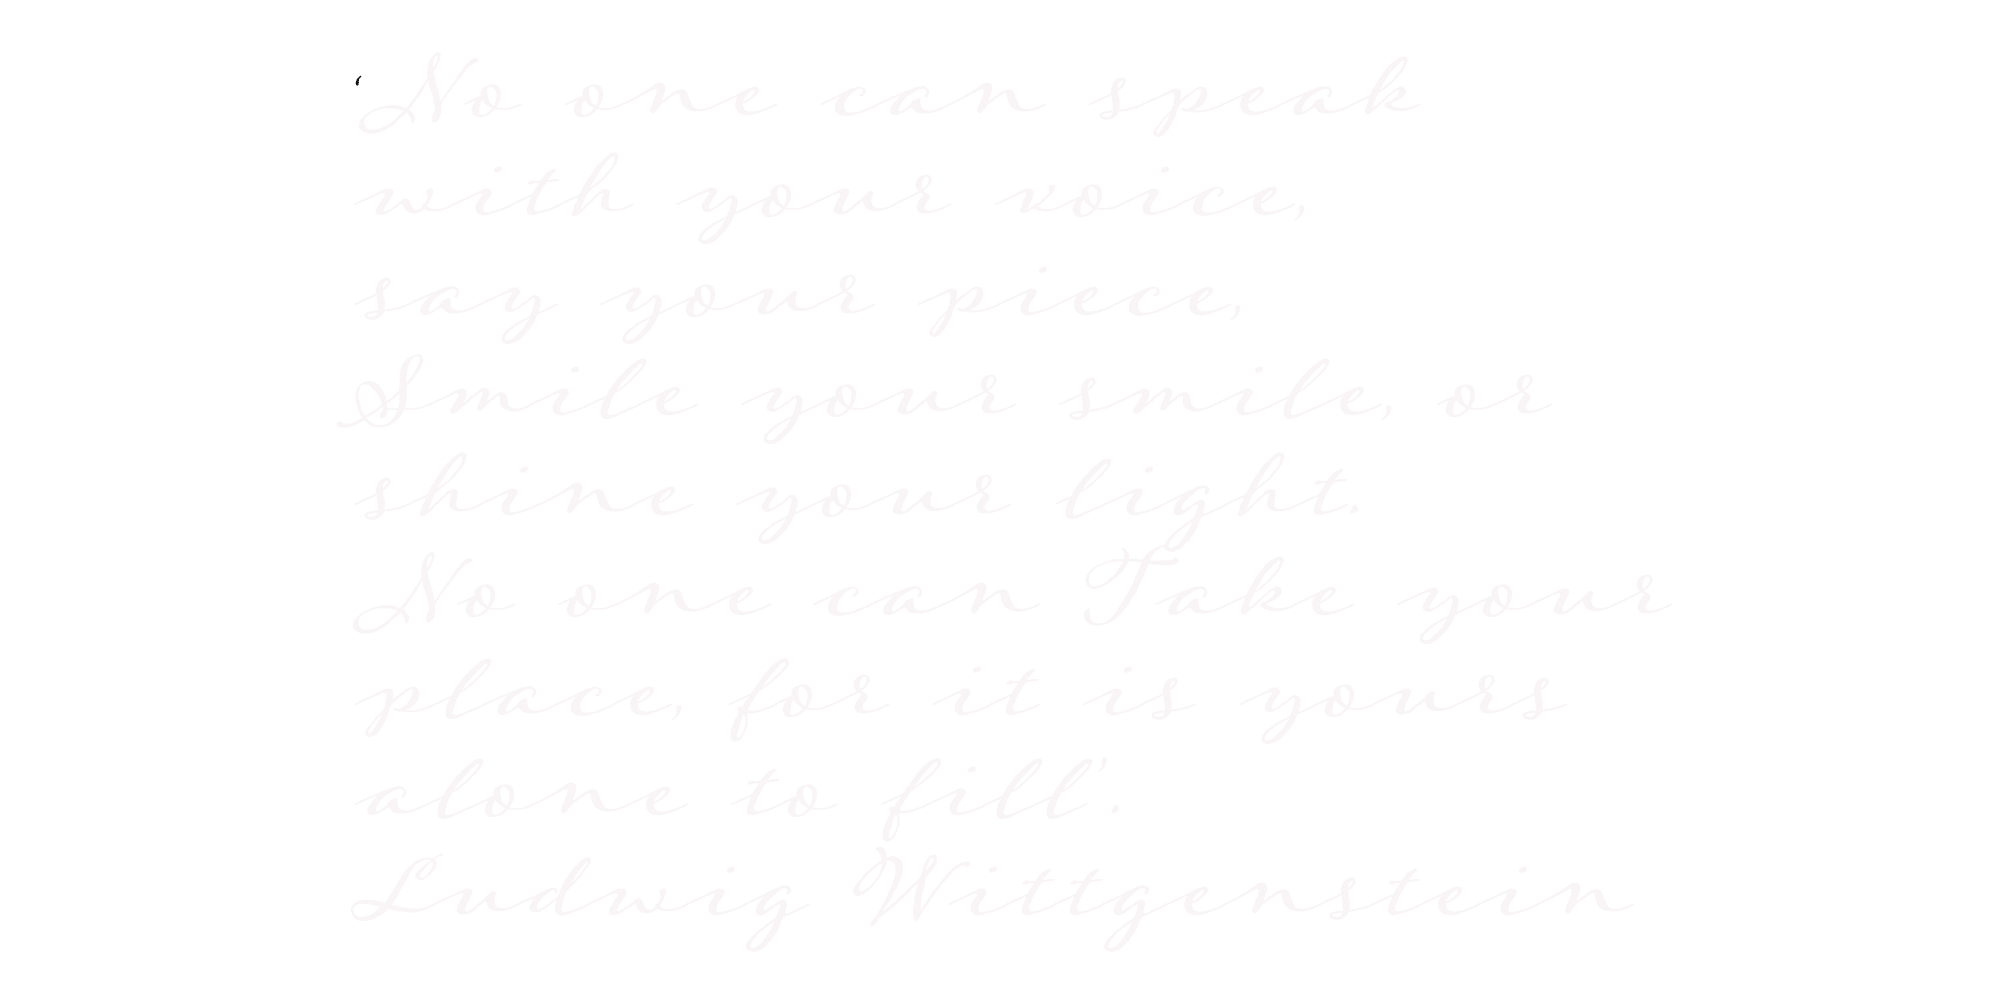 ‘No one can speak
with your voice,
say your piece,
Smile your smile, or
shine your light.
No one can Take your
place, for it is yours
alone to fill’.
Ludwig Wittgenstein